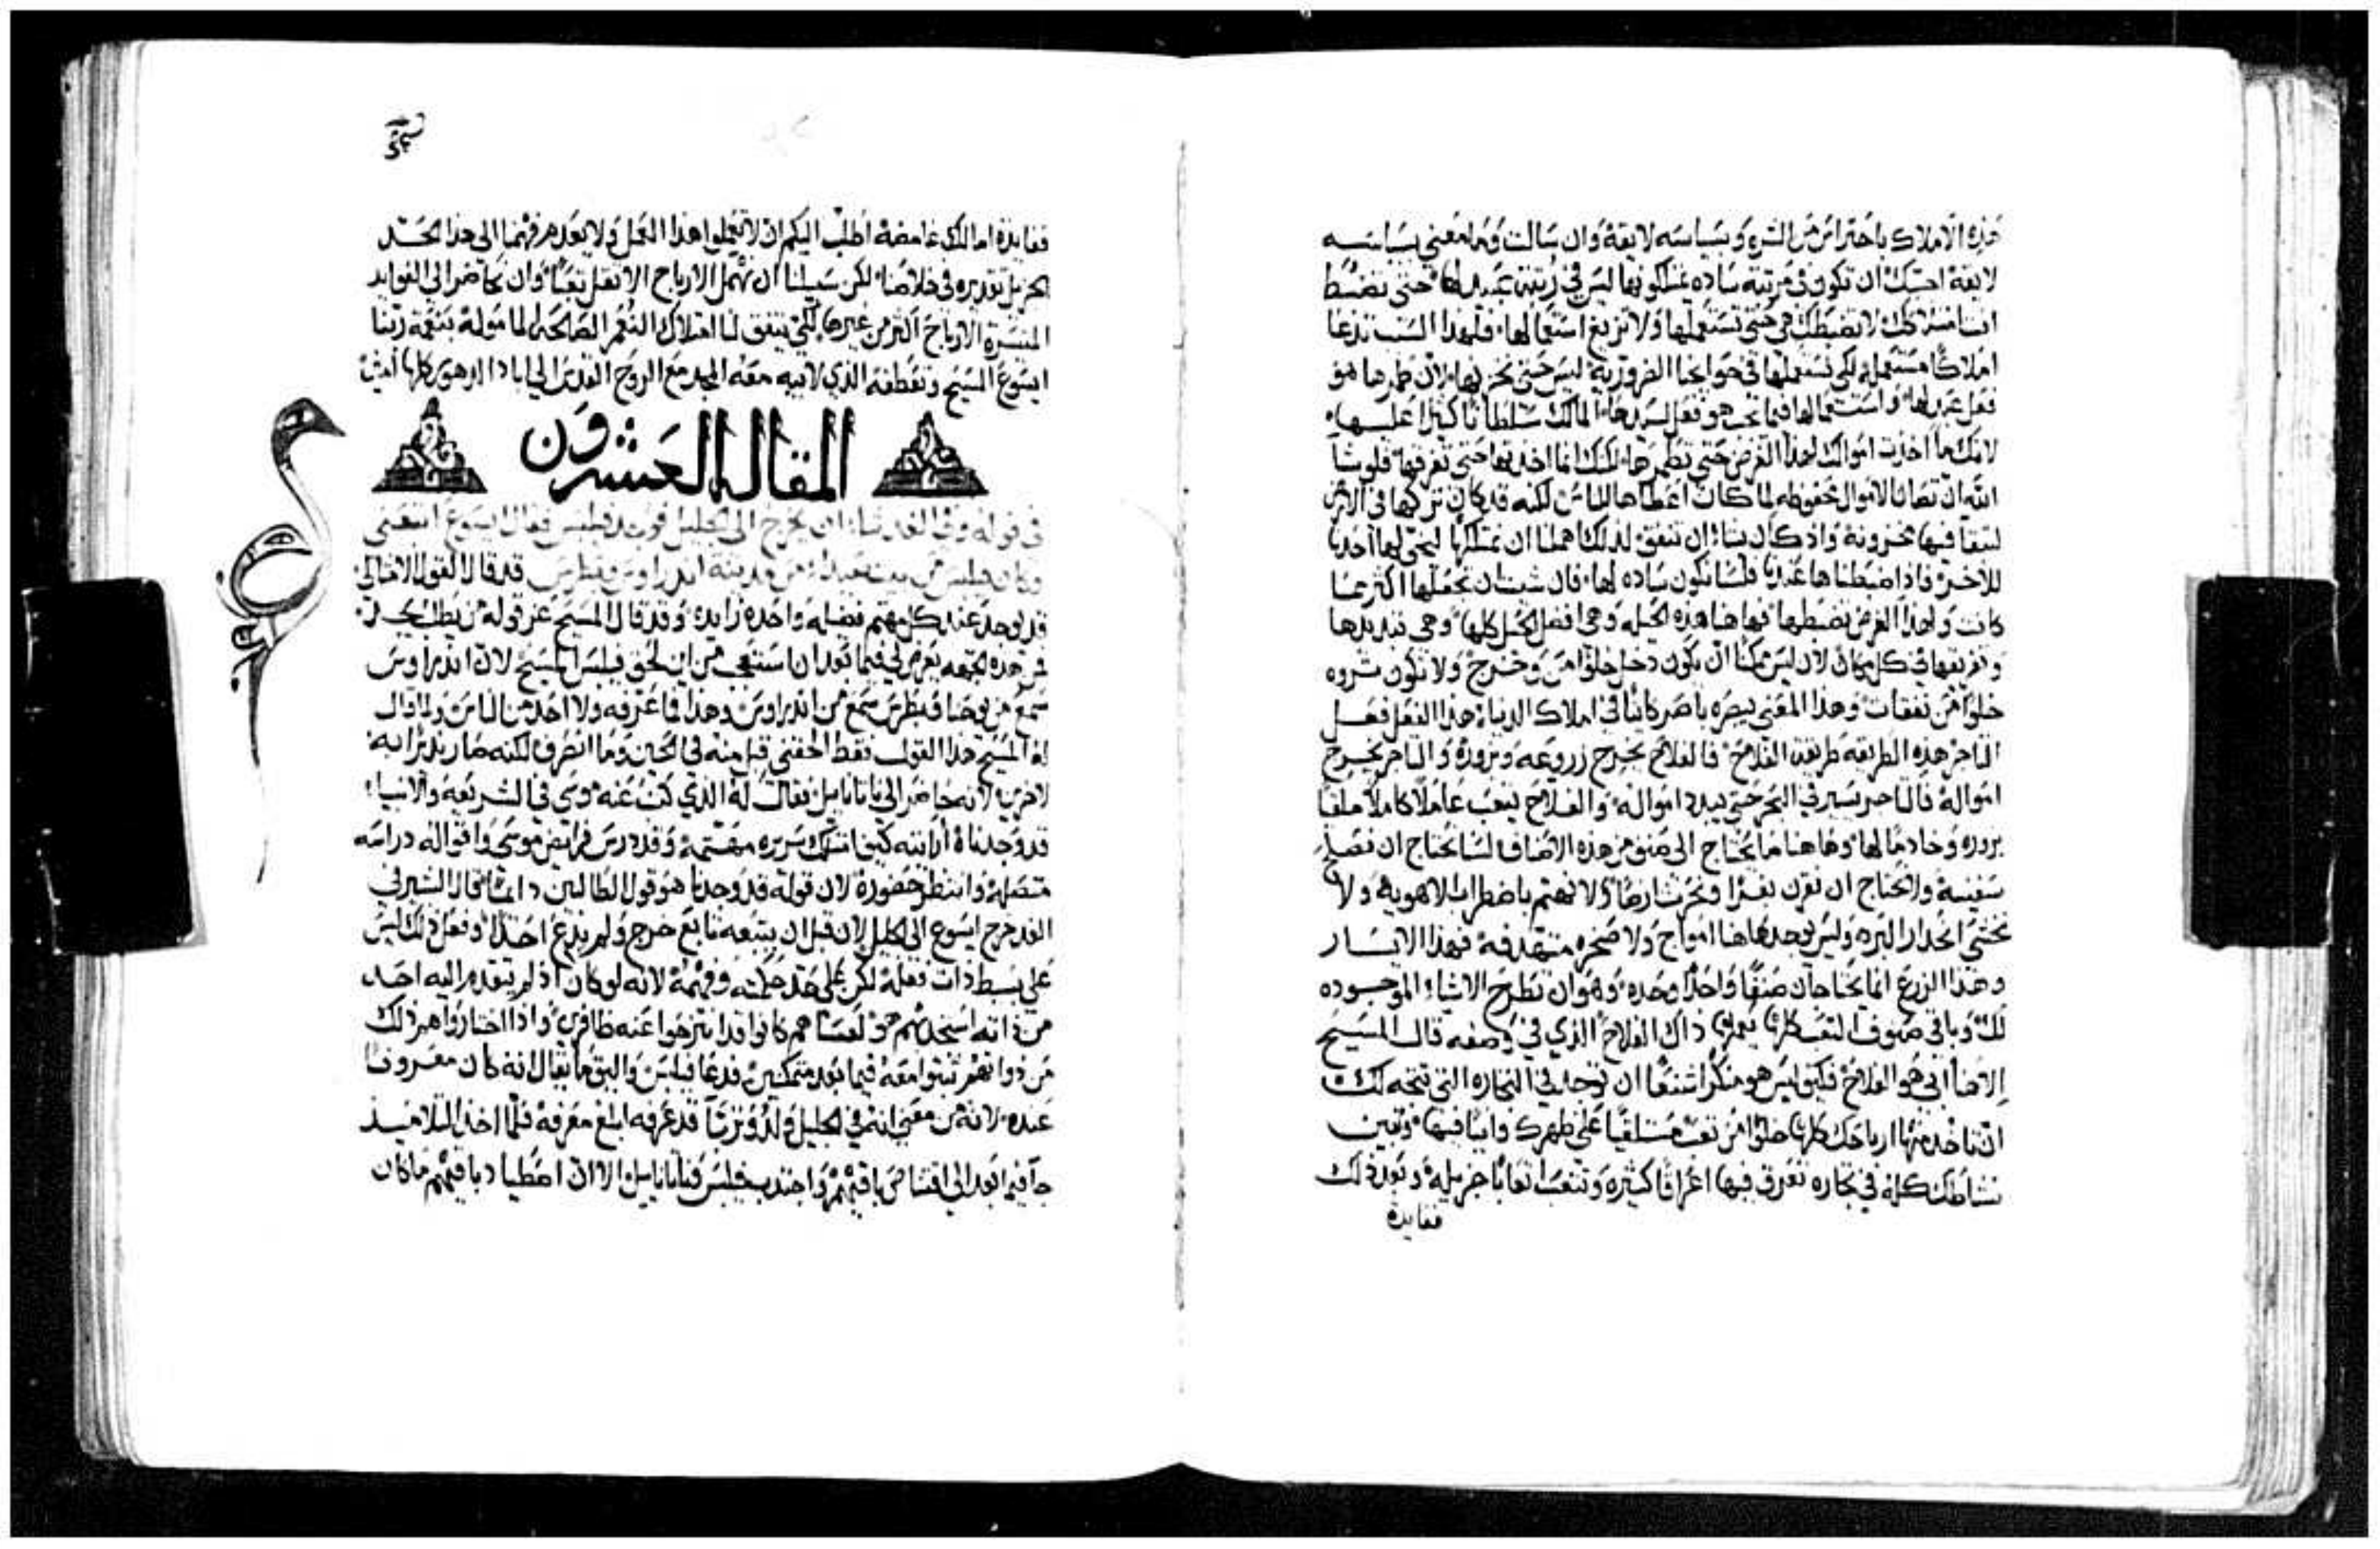 هذه الاملاك باحتراس من الشره وبسياسه لايقة وان سالت وما معني بسياسه
لايقة اجبتك ان تكون في مرتبة ساده تمتلكونها ليس في رتبة عبيد لها حتي تضبط
انت لا تضبطك هي حتي تستعملها ولا تزيغ استعمالها فلهذا السبب تدعا
املاكًا مستعمله لكي نستعملها في حوايجنا الضرورية ليس حتي نخزنها لان طمرها هو
فعل عبد لها واستعمالها فيما يجب هو فعل لسيدها المالك سلطانًا كثيرًا عليها
لانك ما اخذت اموالك لهذا الغرض حتي تطمرها لكنك انما اخذتها حتي تفرقها فلو شا
الله ان تصان الاموال محفوظه لما كان اعطاها للناس لكنه قد كان تركها في الارض
لتبقا فيها مخزونة واذ كان يشاء ان تنفق لذلك اهلنا ان نمتلكها لنجي لها احدنا
للاخر فاذا ضبطناها عندنا فلسنا نكون ساده لها فان شيت ان تجعلها اكثر مما
كانت ولهذا الغرض تضبطها فها هنا هذه الحيله وهي افضل الحيل كلها وهي تبديدها
وتفريقها في كل مكان لان ليس يمكنًا ان يكون دخل خلوًا من خرج ولا تكون ثروه
خلوًا من نفقات وهذا المعني يبصره باصر كاينًا في املاك الدنيا هذا الفعل فعل
التاجر هذه الطريقه طريقة الفلاح فالفلاح يخرج زروعه وبزوره والتاجر يخرج
امواله فالتاجر يسير في البحر حتي يبدد امواله والفلاح يتعب عامًلا كاملًا ملقيًا
بزوره وخادمًا لها وهاهنا ما يحتاج الي صنف من هذه الاصناف لسنا نحتاج ان نصلح
سفينة ولا نحتاج ان نقرن بقرًا ونحرث ارضًا ولا نهتم باضطراب الاهوية ولا
نخشي انحدار البرد وليس يوجد هاهنا امواج ولا صخره منقدفه فهذا الاتسار
وهذا الزرع انما يحتاجان صنفًا واحدًا وحده وهو ان تطرح الاشياء الموجوده
لك وباقي صنوف التعب كلها يعملها ذاك الفلاح الذي في وصفه قال المسيح
ايضًا ابي هو الفلاح فكيف ليس هو منكرًا شنعًا ان توجد في التجاره التي تتجه لك
ان تاخذ منها ارباحك كلها خلوًا من تعب مستلقيًا علي ظهرك وانيًا فيها وتبين
نشاطك كله في تجاره تعرق فيها اعراقًا كثيره وتتعب اتعابًا جزيله وبعد ذلك
ففايدة
ففايدة امالك غامضة اطلب اليكم ان لا تعملوا هذا العمل ولا نعدم فهمنا الي هذا الحد
الجزيل تقديره في خلاصنا لكن سبيلنا ان نهمل الارباح الاثقل تعبًا وان نحاضر الي الفوايد
المتيسرة الارباح اكثر من غيرها لكي يتفق لنا امتلاك النعم الصالحه المامولة بنعمة ربنا
ايسوع المسيح وتعطفه الذي لابيه معه المجد مع الروح القدس الي اباد الدهور كلها امين
المقالة العشرون
في قوله وفي الغد شاء ان يخرج الي الجليل فوجد فيلبس فقال ايسوع اتبعني
وكان فيلبس من بيت صيدا من مدينة اندراوس وبطرس قد قال القول الامثالي
قد يوجد عند كل مهتم فضيله واحده زايده وقد قال المسيح
فمن هذه الجهه يعرض لي فيما بعد ان استعجب من اين لحق فيلبس المسيح لان اندراوس
سمع من يوحنا وبطرس سمع من اندراوس وهذا فما عرفه ولا احد من الناس ولما قال
له المسيح هذا القول فقط الحقني قبل منه في الحين وما انصرف لكنه صار نذيرًا به
لاخرين لانه حاضر الي ناثانايل فقال له الذي كتب عنه موسي في الشريعه والانبياء
قد وجدناه ارايته كيف امتلك سريره مهتمة وقد درس فرايض موسي واقواله دراسه
متصله وانتظر حضوره لان قوله قد وجدنا هو قول الطالبين دايمًا قال البشير في
الغد خرج ايسوع الي الجليل لان قبل ان يتبعه تابع خرج ولم يدع احدًا وفعل ذلك ليس
علي بسيط ذات فعله لكن علي حد حكمته وفهمه لانه لو كان اذ لم يتقدم اليه احد
من ذاته استجذبهم هو لعساهم كانوا قد انتزحوا عنه ظافرين واذا اختاروا هم ذلك
من ذواتهم ثبتوا معه فيما بعد متمكنين فدعا فيلبس واليق ما يقال انه كان معروفا
عنده لانه من معني انه في الجليل ولد وتربا قد عرفه ابلغ معرفة فلما اخذ التلاميذ
جا فيما بعد الي اقتناص باقيهم واجتذب فيلبس وناثانايل الا ان اصطياد باقيهم ما كان